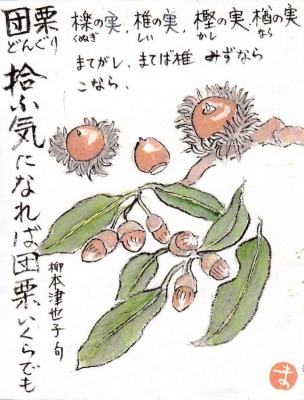 団栗
どんぐり
櫟の実、椎の実、樫の実、楢の実
くぬぎ しい かし なら
まてがし、まてば椎 みずなら
こなら、
拾ふ気になれば団栗いくらでも
柳本津也子 句
ま